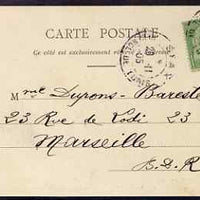 CARTE POSTALE
Ce côté est exclusivement
Mme Dupons-Bareste
23 Rue de Lodi 23
Marseille
B.D.R